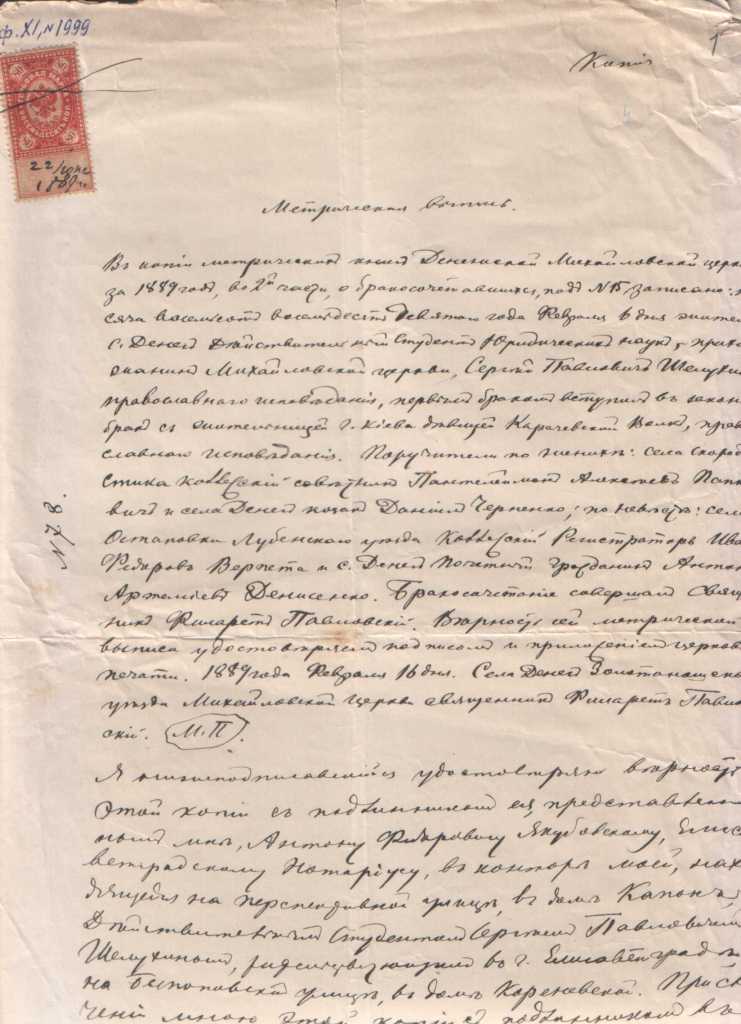 ф. XI, № 1999
1
Копія
50 50
50 50
22 /юня
1889 г.
Метрическая выпись.
Въ копіи метрическихъ книгъ Денежской Михайловской церк
за 1889 годъ, во 2й части, о бракосочетавшихся, подъ № записано:
сяча восемьсотъ восемьдесятъ девятого года Февраля 6 дня жител
с. Денег Дѣйствительный Студентъ Юридическихъ наукъ, прихо
жанинъ Михайловской церкви, Сергѣй Павловичъ Шелухин
православнаго исповѣданія, первымъ бракомъ вступилъ въ закон
бракъ съ жительницей г. Кіева дѣвицей Карачевской Волкъ, прав
славного исповѣданія. Поручители по женихѣ: села Скоро
стика Коллежскій совѣтникъ Пантелеимонъ Алексѣевъ Попк
вичъ и села Денег козакъ Даніилъ Черненко; по невѣстѣ: сел
Остаповки Лубенского уѣзда Коллежскій Регистраторъ Ива
Федоровъ Верпета и с. Денег Почетный гражданинъ Антон
Артемьевъ Денисенко. Бракосочетаніе совершалъ Свящ
никъ Филаретъ Павловскій. Вѣрность сей метрической
выписи удостовѣряемъ подписомъ и приложеніемъ церков
печати. 1889 года Февраля 16 дня. Села Денег Золотоношск
уѣзда Михайловской церкви священникъ Филаретъ Павлов
скій. М.П.
№ 78.
Я нижеподписавшійся удостовѣряю вѣрность
этой копіи съ подлинникомъ ея, представлен
нымъ мнѣ, Антону Федоровичу Якубовскому, Елис
ветградскому Нотаріусу, въ конторѣ моей, нах
дящейся на перспективной улицѣ, въ домѣ Капонъ,
Дѣйствительнымъ Студентомъ Сергѣемъ Павловичем
Шелухинымъ, жительствующимъ въ г. Елисаветградѣ
на улицѣ, въ домѣ Кореневской. При сл
ченіи мною этой копіи съ подлинникомъ въ